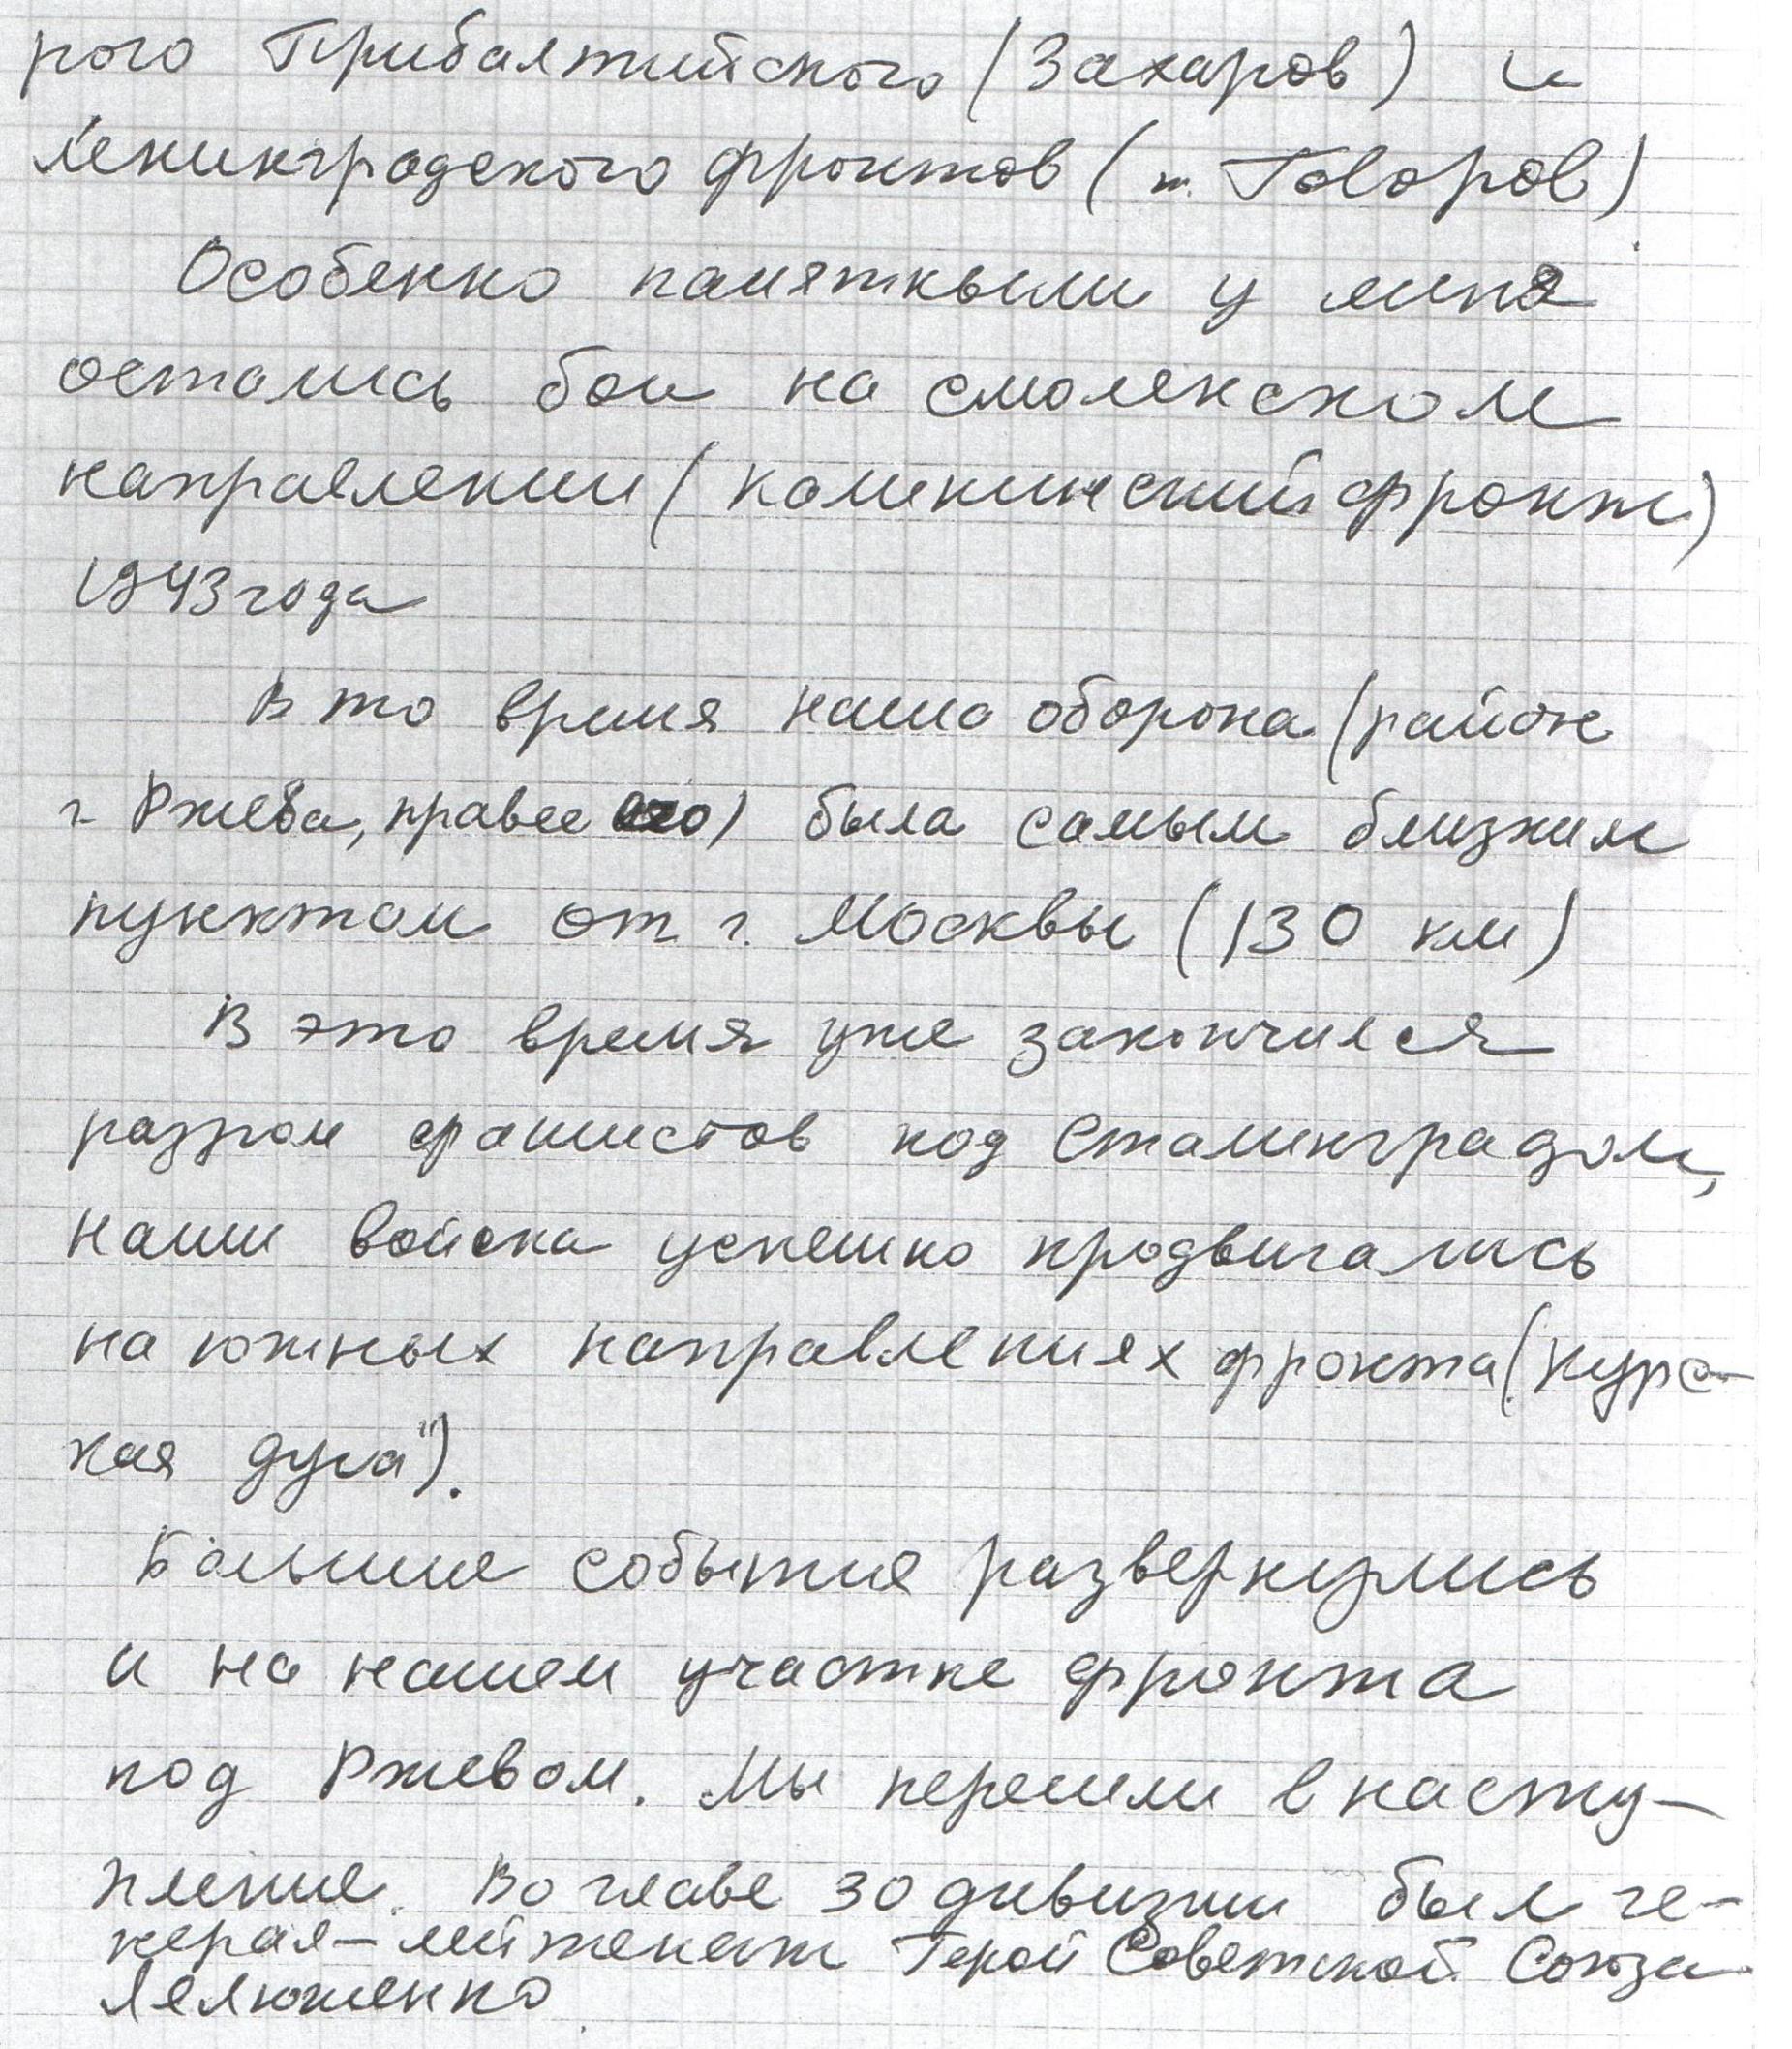 рого Прибалтийского (Захаров) и
Ленинградского фронтов (т. Говоров)
Особенно памятными у меня
остались бои на смоленском
направлении (Калининский фронт)
1943 года
В то время наша оборона (район
г. Ржева, правее его) была самым близким
пунктом от г. Москвы (130 км)
В это время уже закончился
разгром фашистов под Сталинградом,
наши войска успешно продвигались
на южных направлениях фронта (Курс-
кая дуга").
Большие события развернулись
и на нашем участке фронта
под Ржевом. Мы перешли в насту-
пление. Во главе 30 дивизии был ге-
нерал-лейтенант Герой Советской Союза
Лелюшенко